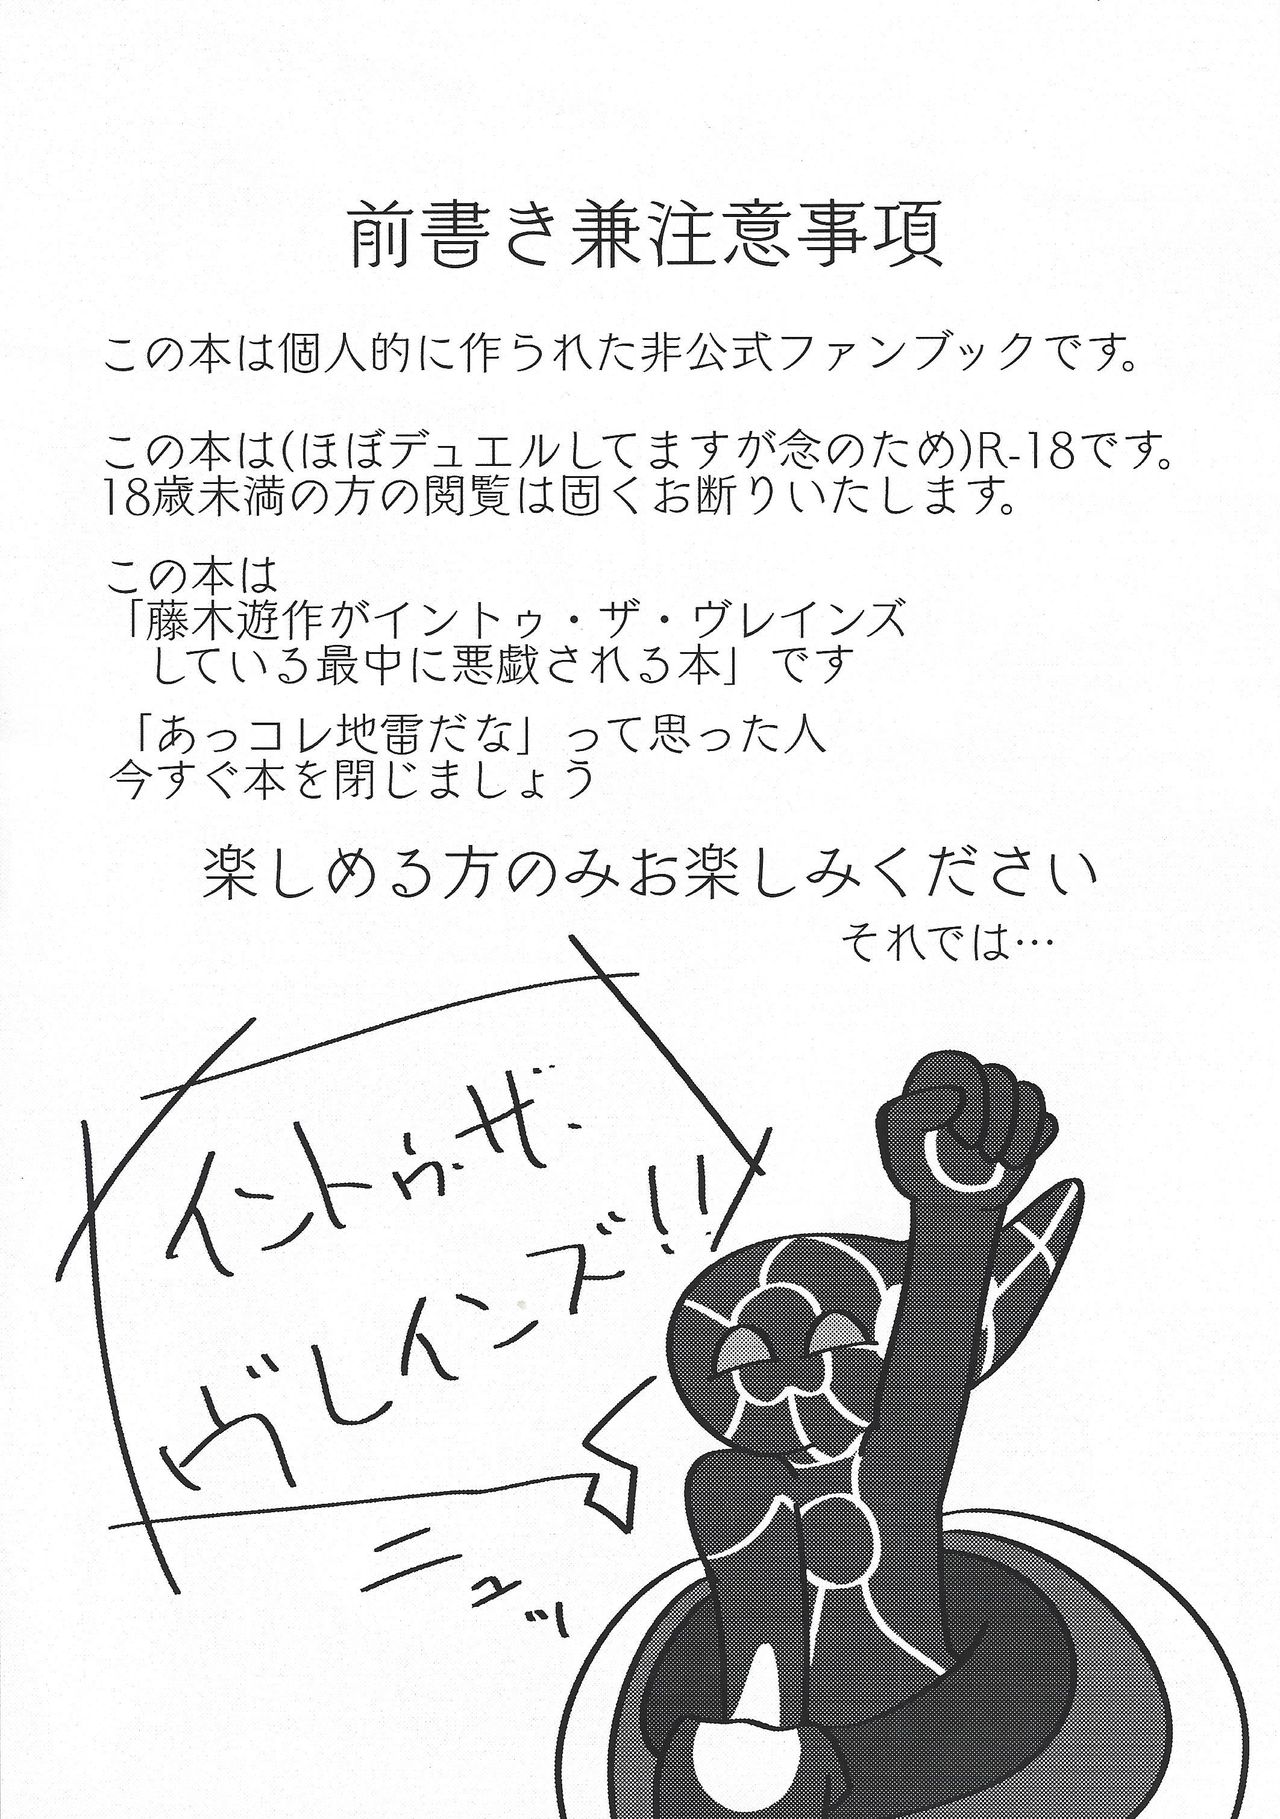 前書き兼注意事項
この本は個人的に作られた非公式ファンブックです。
この本は(ほぼデュエルしてますが念のため)R-18です。
18歳未満の方の閲覧は固くお断りいたします。
この本は
「藤木遊作がイントゥ・ザ・ヴレインズ
している最中に悪戯される本」です
「あっコレ地雷だな」って思った人
今すぐ本を閉じましょう
楽しめる方のみお楽しみください
それでは…
イントゥ・ザ・
ヴレインズ!!
ニュッ